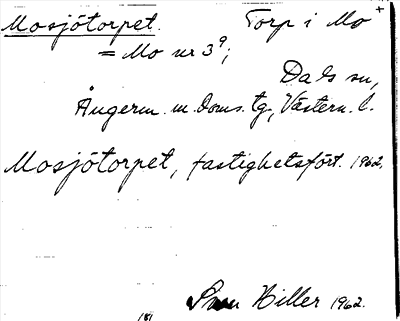 Mosjötorpet. Torp i Mo +
= Mo nr 3⁹;
Dals sn,
Ångerm. m. doms. tg, Västern. l.
Mosjötorpet, fastighetsfört. 1962.
Hiller 1962.
181